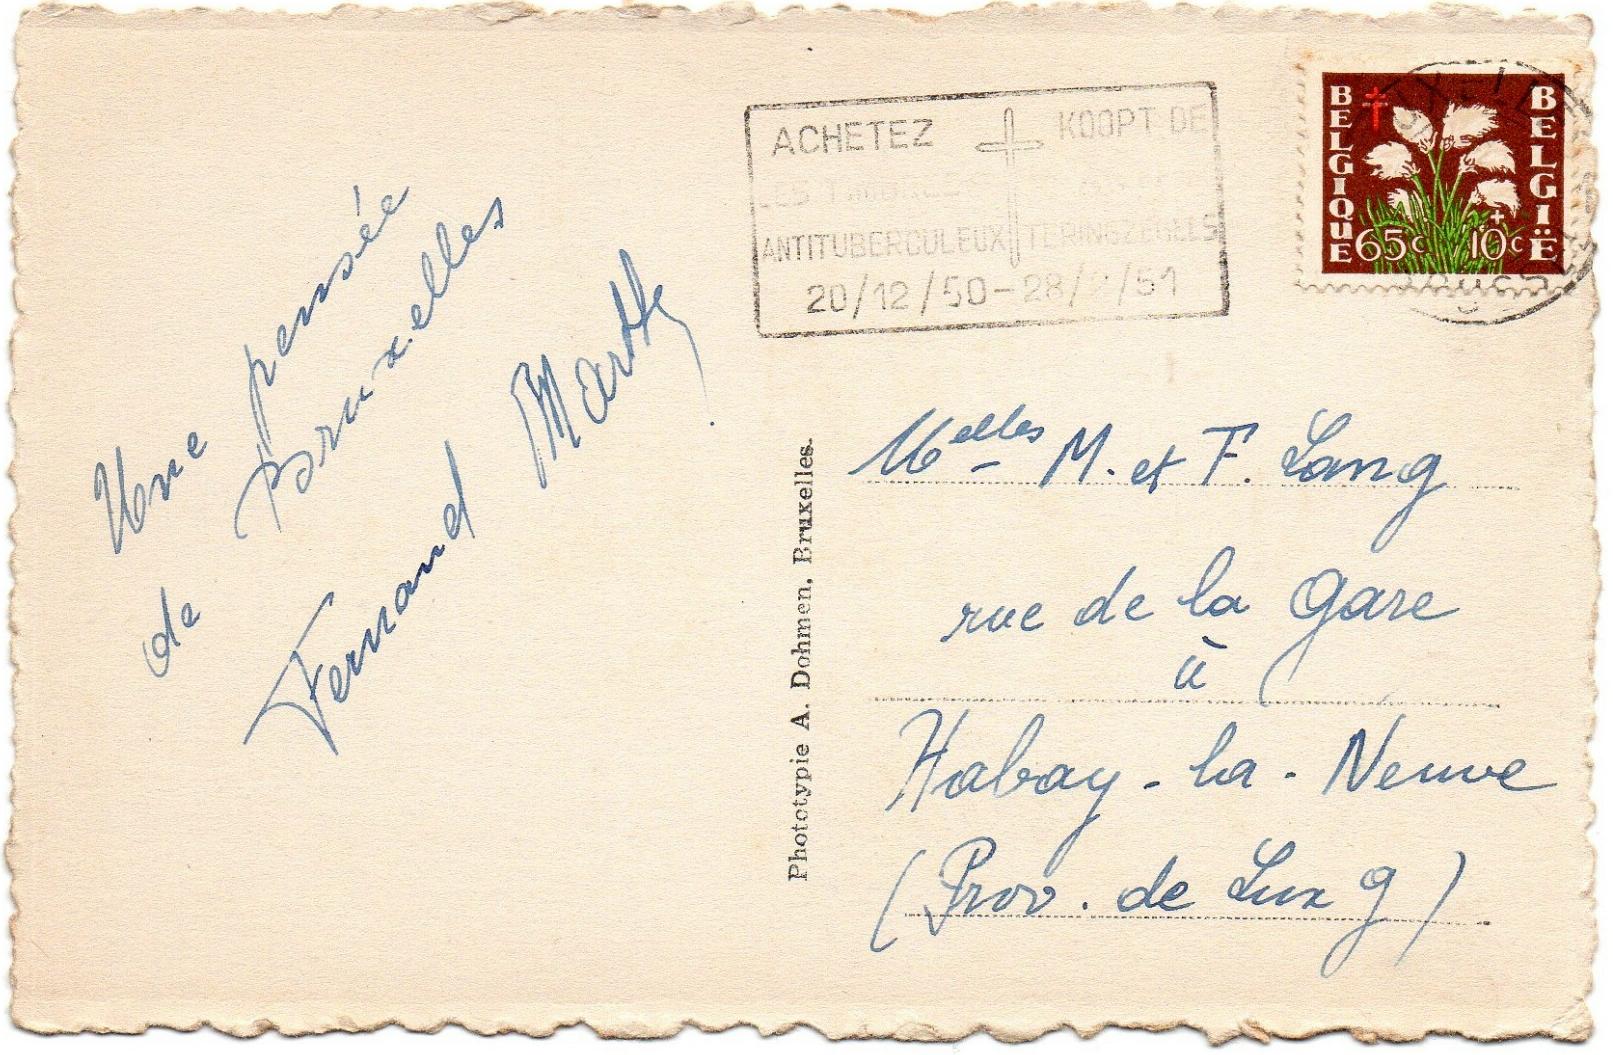 Une pensée
de Bruxelles
Fernand Marthy
ACHETEZ KOOPT DE
ANTITUBERCULEUX TERINGZEGELS
20/12/50-28/2/51
BELGIQUE BELGIË
65c +10c
Melles M. et F. Lang
rue de la Gare
à
Habay-la-Neuve
(Prov. de Luxg)
Phototypie A. Dohmen, Bruxelles.